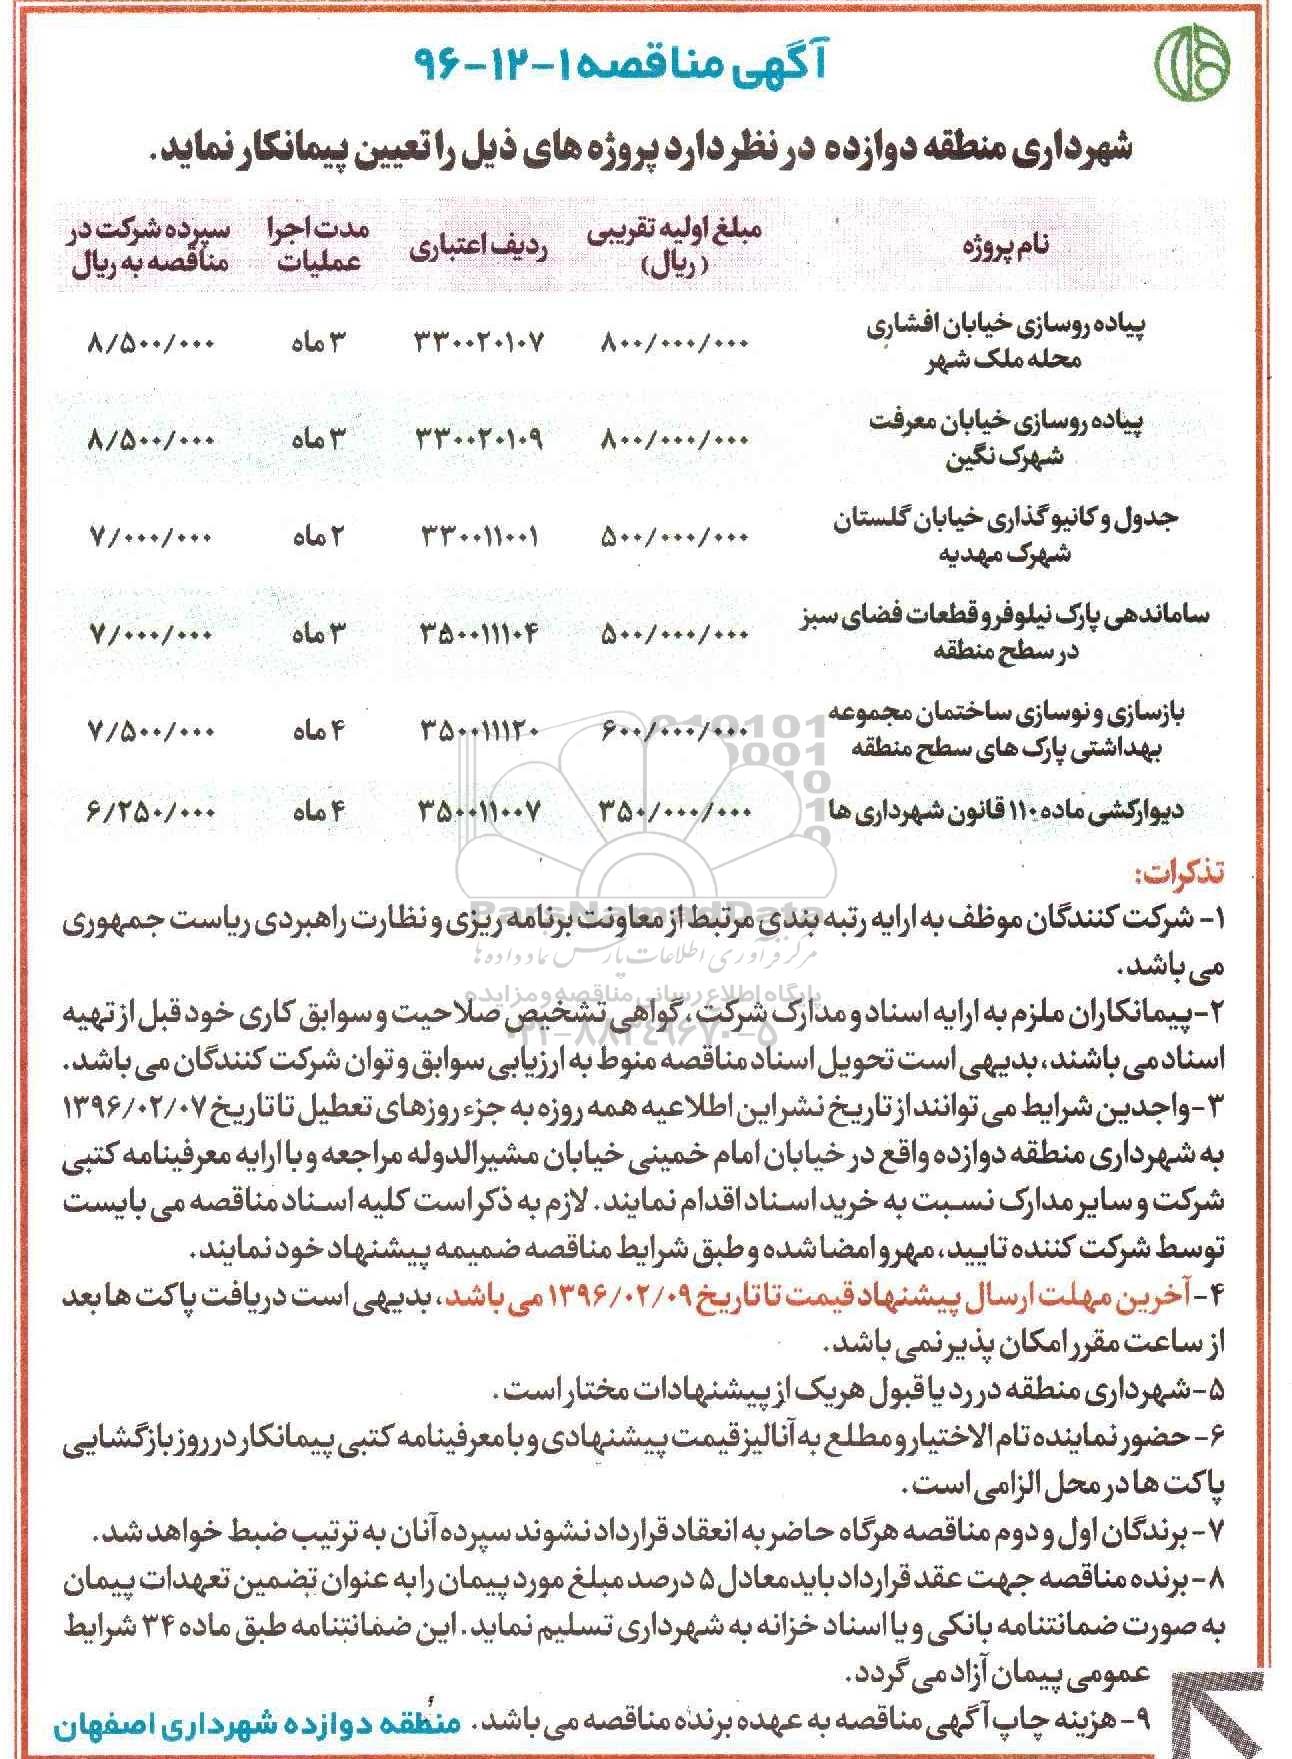 آگهی مناقصه ۱-۱۲-۹۶
شهرداری منطقه دوازده در نظر دارد پروژه های ذیل را تعیین پیمانکار نماید.
نام پروژه	مبلغ اولیه تقریبی (ریال)	ردیف اعتباری	مدت اجرا عملیات	سپرده شرکت در مناقصه به ریال
پیاده روسازی خیابان افشاری محله ملک شهر	۸۰۰/۰۰۰/۰۰۰	۳۳۰۰۲۰۱۰۷	۳ ماه	۸/۵۰۰/۰۰۰
پیاده روسازی خیابان معرفت شهرک نگین	۸۰۰/۰۰۰/۰۰۰	۳۳۰۰۲۰۱۰۹	۳ ماه	۸/۵۰۰/۰۰۰
جدول و کانیو گذاری خیابان گلستان شهرک مهدیه	۵۰۰/۰۰۰/۰۰۰	۳۳۰۰۱۱۰۰۱	۲ ماه	۷/۰۰۰/۰۰۰
ساماندهی پارک نیلوفر و قطعات فضای سبز در سطح منطقه	۵۰۰/۰۰۰/۰۰۰	۳۵۰۰۱۱۱۰۴	۳ ماه	۷/۰۰۰/۰۰۰
بازسازی و نوسازی ساختمان مجموعه بهداشتی پارک های سطح منطقه	۶۰۰/۰۰۰/۰۰۰	۳۵۰۰۱۱۱۲۰	۴ ماه	۷/۵۰۰/۰۰۰
دیوارکشی ماده ۱۱۰ قانون شهرداری ها	۳۵۰/۰۰۰/۰۰۰	۳۵۰۰۱۱۰۰۷	۴ ماه	۶/۲۵۰/۰۰۰
تذکرات:
۱- شرکت کنندگان موظف به ارایه رتبه بندی مرتبط از معاونت برنامه ریزی و نظارت راهبردی ریاست جمهوری
می باشد.
۲-پیمانکاران ملزم به ارایه اسناد و مدارک شرکت، گواهی تشخیص صلاحیت و سوابق کاری خود قبل از تهیه
اسناد می باشند، بدیهی است تحویل اسناد مناقصه منوط به ارزیابی سوابق و توان شرکت کنندگان می باشد.
۳-واجدین شرایط می توانند از تاریخ نشر این اطلاعیه همه روزه به جزء روزهای تعطیل تا تاریخ ۱۳۹۶/۰۲/۰۷
به شهرداری منطقه دوازده واقع در خیابان امام خمینی خیابان مشیرالدوله مراجعه و با ارایه معرفینامه کتبی
شرکت و سایر مدارک نسبت به خرید اسناد اقدام نمایند. لازم به ذکر است کلیه اسناد مناقصه می بایست
توسط شرکت کننده تایید، مهر و امضا شده و طبق شرایط مناقصه ضمیمه پیشنهاد خود نمایند.
۴-آخرین مهلت ارسال پیشنهاد قیمت تا تاریخ ۱۳۹۶/۰۲/۰۹ می باشد، بدیهی است دریافت پاکت ها بعد
از ساعت مقرر امکان پذیر نمی باشد.
۵-شهرداری منطقه در رد یا قبول هریک از پیشنهادات مختار است.
۶- حضور نماینده تام الاختیار و مطلع به آنالیز قیمت پیشنهادی و با معرفینامه کتبی پیمانکار در روز بازگشایی
پاکت ها در محل الزامی است.
۷-برندگان اول و دوم مناقصه هرگاه حاضر به انعقاد قرارداد نشوند سپرده آنان به ترتیب ضبط خواهد شد.
۸-برنده مناقصه جهت عقد قرارداد باید معادل ۵ درصد مبلغ مورد پیمان را به عنوان تضمین تعهدات پیمان
به صورت ضمانتنامه بانکی و یا اسناد خزانه به شهرداری تسلیم نماید. این ضمانتنامه طبق ماده ۳۴ شرایط
عمومی پیمان آزاد می گردد.
۹-هزینه چاپ آگهی مناقصه به عهده برنده مناقصه می باشد. منطقه دوازده شهرداری اصفهان
ParsNamadData
مرکز فرآوری اطلاعات پارس نماد داده ها
پایگاه اطلاع رسانی مناقصه و مزایده
۰۲۱-۸۸۳۴۹۶۷۰-۵